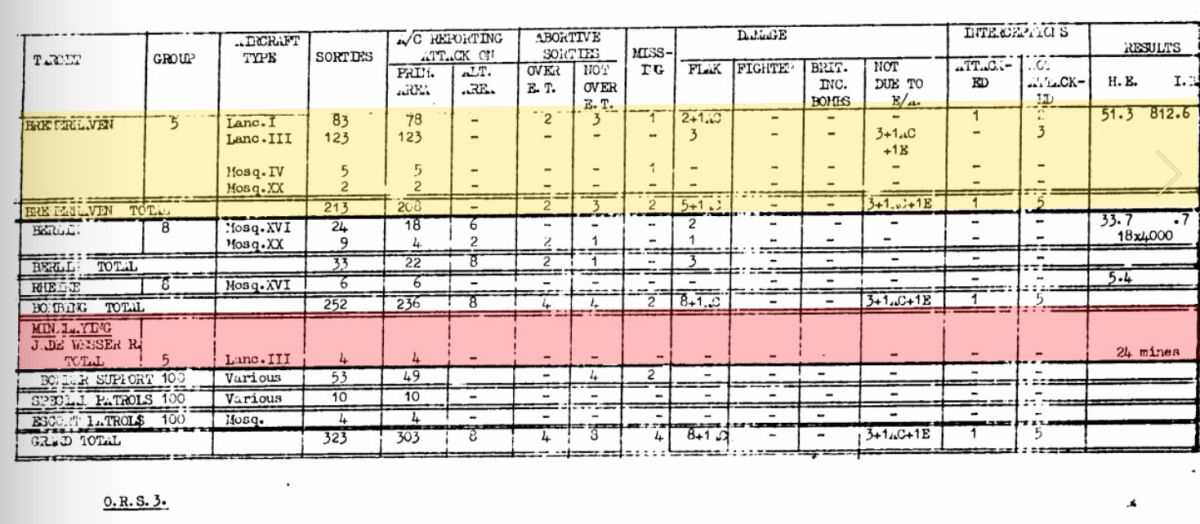 TARGET GROUP AIRCRAFT TYPE SORTIES A/C REPORTING ATTACK ON PRIM. AREA ALT. AREA ABORTIVE SORTIES OVER E.T. NOT OVER E.T. MISS- ING DAMAGE FLAK FIGHTER BRIT. INC. BOMBS NOT DUE TO E/A. INTERCEPTIONS ATTACK- ED NOT ATTACK- ED RESULTS H.E. I.B
5 Lanc.I 83 78 - 2 3 1 2+1AC - - - 1 51.3 812.6
Lanc.III 123 123 - - - - 3 - - 3+1AC - 3
+1E
Mosq.IV 5 5 - - - 1 - - - - - -
Mosq.XX 2 2 - - - - - - - - - -
TOTAL 213 208 - 2 3 2 5+1AC - - 3+1AC+1E 1 5
BERLIN 8 Mosq.XVI 24 18 6 - - - 2 - - - - - 33.7 .7
Mosq.XX 9 4 2 2 1 - 1 - - - - - 18x4000
BERLIN TOTAL 33 22 8 2 1 - 3 - - - - -
RHEINE 8 Mosq.XVI 6 6 - - - - - - - - - - 5.4
BOMBING TOTAL 252 236 8 4 4 2 8+1AC - - 3+1AC+1E 1 5
MINELAYING
JADE WESSER R.
TOTAL 5 Lanc.III 4 4 - - - - - - - - - - 24 mines
BOMBER SUPPORT 100 Various 53 49 - - 4 2 - - - - - -
SPECIAL PATROLS 100 Various 10 10 - - - - - - - - - -
ESCORT PATROLS 100 Mosq. 4 4 - - - - - - - - - -
GRAND TOTAL 323 303 8 4 8 4 8+1AC - - 3+1AC+1E 1 5
O.R.S.3.